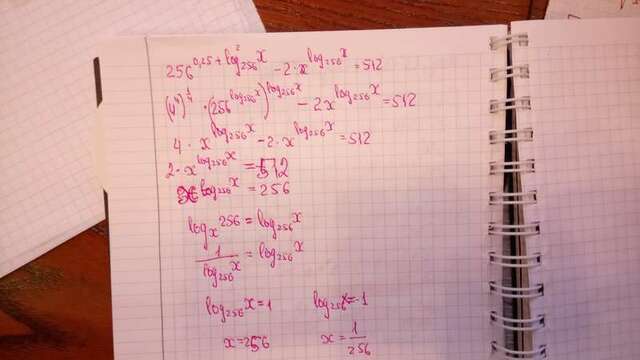 256^{0,25 + log²_{256} x} - 2·x^{log_{256} x} = 512
(4⁴)^{1/4} · (256^{log_{256} x})^{log_{256} x} - 2x^{log_{256} x} = 512
4 · x^{log_{256} x} - 2·x^{log_{256} x} = 512
2·x^{log_{256} x} = 512
x^{log_{256} x} = 256
log_x 256 = log_{256} x
1/(log_{256} x) = log_{256} x
log_{256} x = 1 log_{256} x = -1
x = 256 x = 1/256